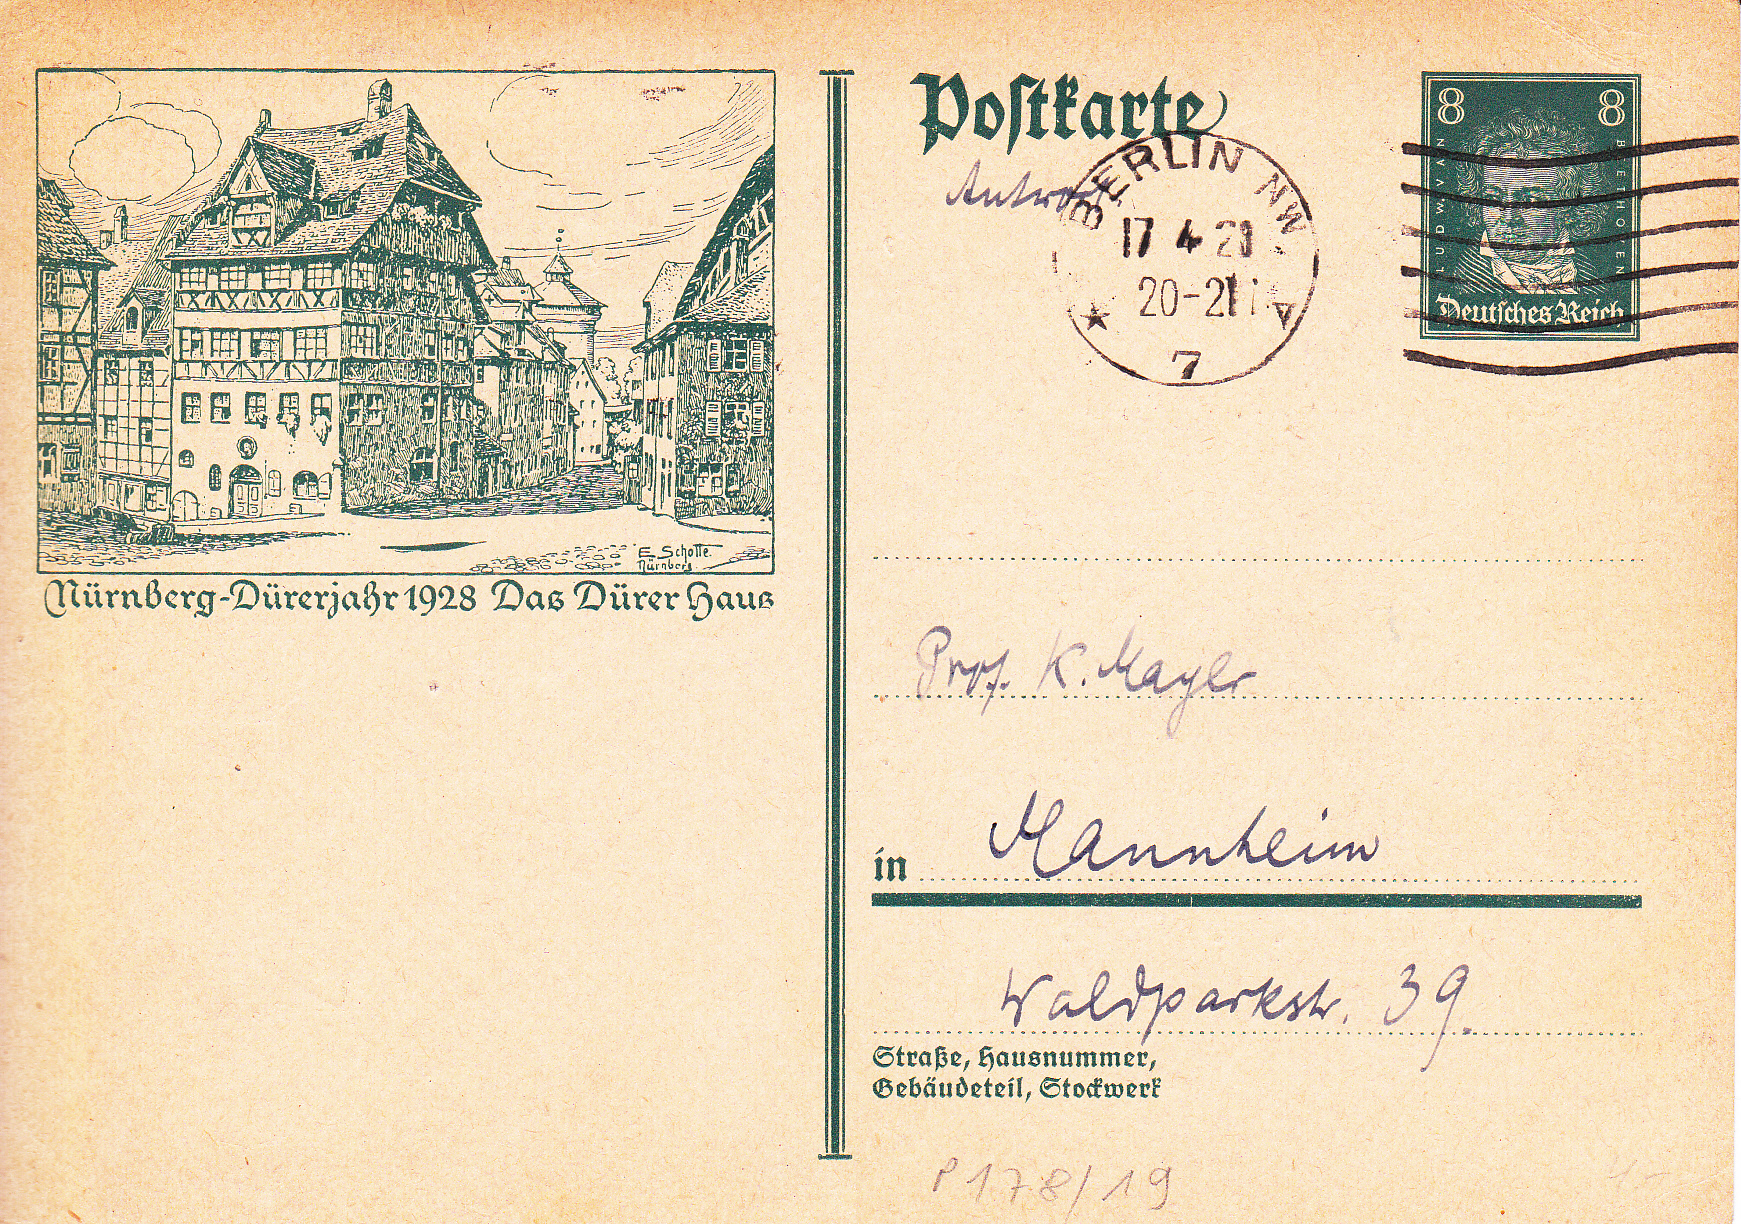 E. Schotte.
Nürnberg.
Nürnberg-Dürerjahr 1928 Das Dürer Haus
Postkarte
Antwort
BERLIN NW
17 4 28
20-21
A
★ 7
8 8
LUDWIG VAN BEETHOVEN
Deutsches Reich
Prof. K. Mayer
in Mannheim
Waldparkstr. 39.
Straße, Hausnummer,
Gebäudeteil, Stockwerk
P 178/19